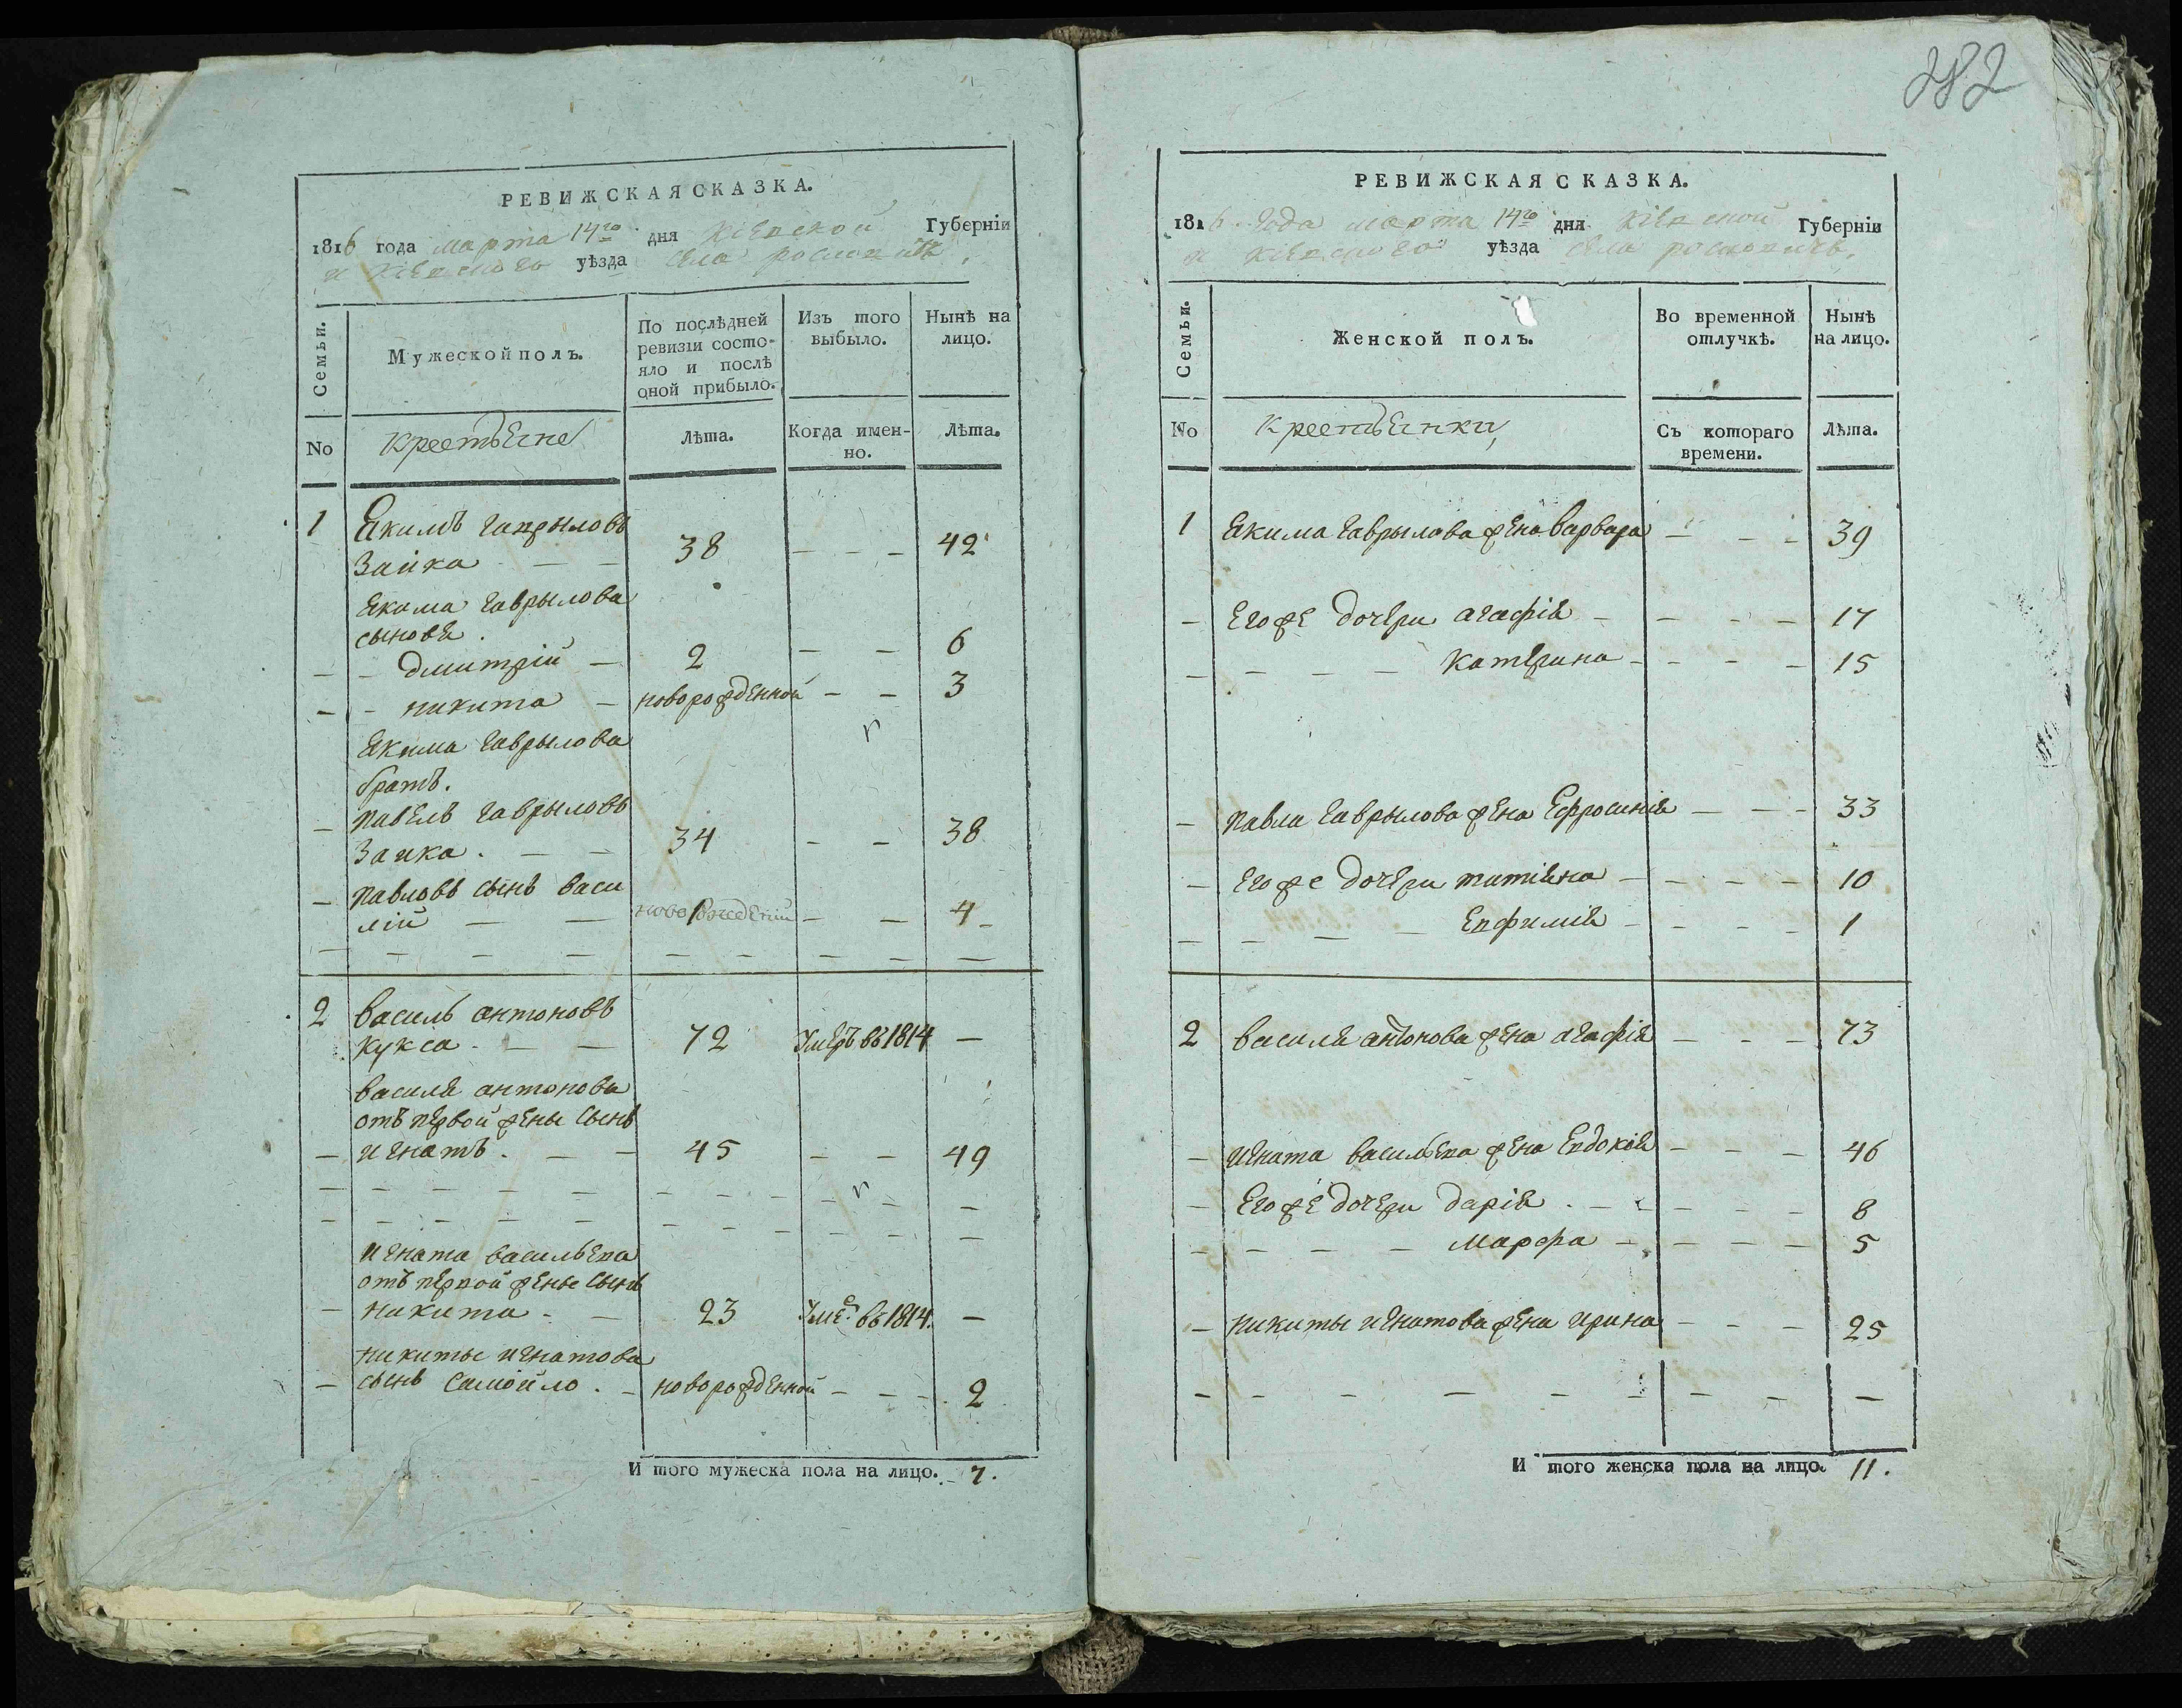 282
РЕВИЖСКАЯ СКАЗКА.
1816 года марта 14го дня Кіевской Губерніи
и Кіевского уѣзда села
Семьи.
Мужеской полъ.
По послѣдней ревизіи состояло и послѣ оной прибыло.
Изъ того выбыло.
Нынѣ на лицо.
No
крестьяне
Лѣта.
Когда именно.
Лѣта.
1 Якимъ гаврыловъ
Заика - - 38 - - - 42
Якима гаврылова
сыновя.
- - дмитрій - 2 - - 6
- - никита - новорожденной - - 3
Якима гаврылова
братъ.
- павелъ гаврыловъ
Заика. - - 34 - - 38
- павловъ сынъ васи
лій - - новорожденій - - 4 -
2 василь антоновъ
кукса. - - 72 Умеръ въ 1814 -
василя антонова
отъ первой жены сынъ
- игнатъ. - - 45 - - 49
игната васильева
отъ первой жены сынъ
- никита - - 23 Уме: въ 1814. -
никиты игнатова
- сынъ самойло. - новорожденной - - - 2
И того мужеска пола на лицо. 7.
РЕВИЖСКАЯ СКАЗКА.
1816 года марта 14го дня Кіевской Губерніи
и Кіевского уѣзда села
Семьи.
Женской полъ.
Во временной отлучкѣ.
Нынѣ на лицо.
No
крестьянки
Съ котораго времени.
Лѣта.
1 Якима гаврылова жена варвара - - - 39
- Его же дочери агафія - - - - 17
- - - - Катерина - - - - 15
- павла гаврылова жена Ефросинія - - - 33
- его же дочери татіяна - - - - 10
- - - - Евфимія - - - - 1
2 василя антонова жена агафія - - - 73
- игната васильева жена Евдокія - - - 46
- Его же дочери дарія. - - - - 8
- - - - марфа - - - - 5
- никиты игнатова жена ирина - - - 25
И того женска пола на лицо. 11.